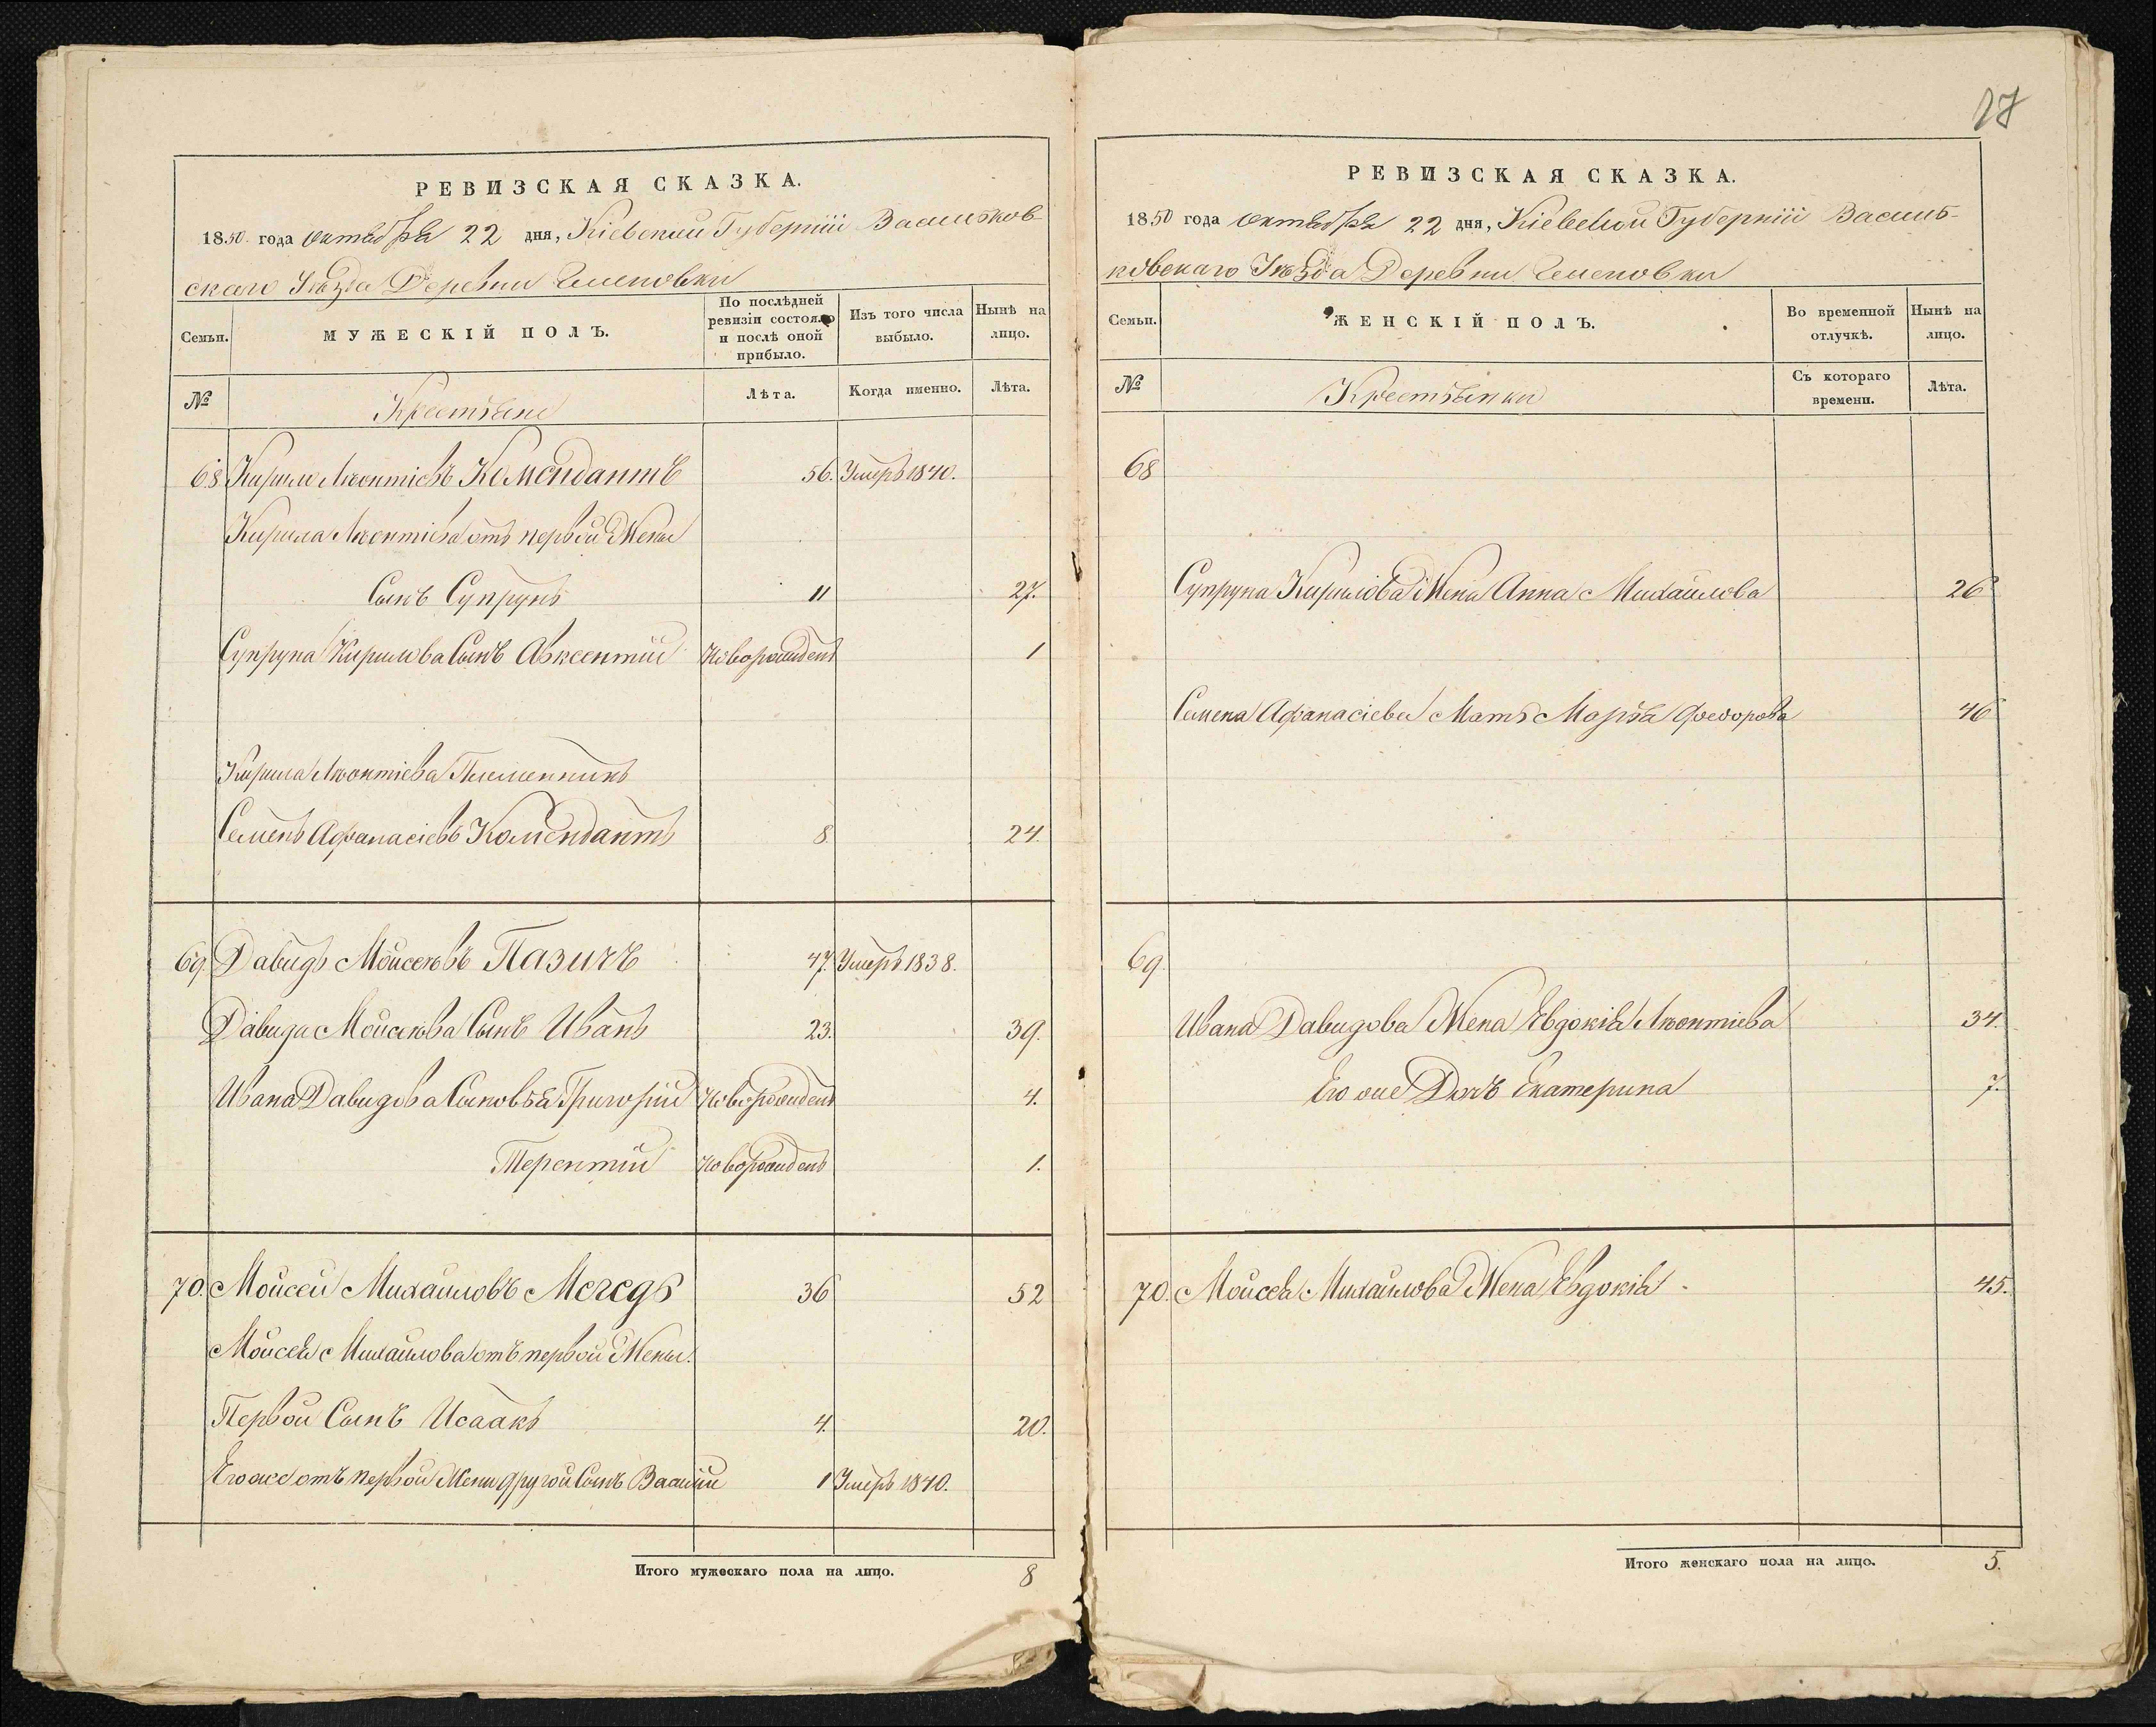 РЕВИЗСКАЯ СКАЗКА.
1850 года октября 22 дня, Кіевской Губерніи Васильков-
скаго Уѣзда Деревни
Семьи.
МУЖЕСКІЙ ПОЛЪ.
По послѣдней ревизіи состояло и послѣ оной прибыло.
Изъ того числа выбыло.
Нынѣ на лицо.
№
Крестьяне
Лѣта.
Когда именно.
Лѣта.
68 Кирило Леонтіевъ Комендантъ 56. Умеръ 1840.
Кирила Леонтіева отъ первой Жены
Сынъ Супрунъ 11 27.
Супруна Кирилова Сынъ Авксентій Новорожденъ 1
Кирила Леонтіева Племенникъ
Семенъ Афанасіевъ Комендантъ 8. 24.
69. Давидъ Мойсеевъ Пазичъ 47. Умеръ 1838.
Давида Мойсеева Сынъ Иванъ 23. 39.
Ивана Давидова Сыновья Григорій Новорожденъ 4.
Терентій Новорожденъ 1.
70. Мойсей Михайловъ Мечедъ 36 52
Мойсея Михайлова отъ первой Жены.
Первой Сынъ Исаакъ 4. 20.
Его же отъ первой Жены другой Сынъ Василій 1 Умеръ 1840.
Итого мужескаго пола на лицо. 8
17
РЕВИЗСКАЯ СКАЗКА.
1850 года октября 22 дня, Кіевской Губерніи Василь-
ковскаго Уѣзда Деревни
Семьи.
ЖЕНСКІЙ ПОЛЪ.
Во временной отлучкѣ.
Нынѣ на лицо.
№
Крестьянки
Съ котораго времени.
Лѣта.
68
Супруна Кирилова Жена Анна Михайлова 26
Семена Афанасіева Мать Марья Федорова 46
69.
Ивана Давидова Жена Евдокія Леонтіева 34.
Его же Дочь Екатерина 7.
70. Мойсея Михайлова Жена Евдокія 45.
Итого женскаго пола на лицо. 5.